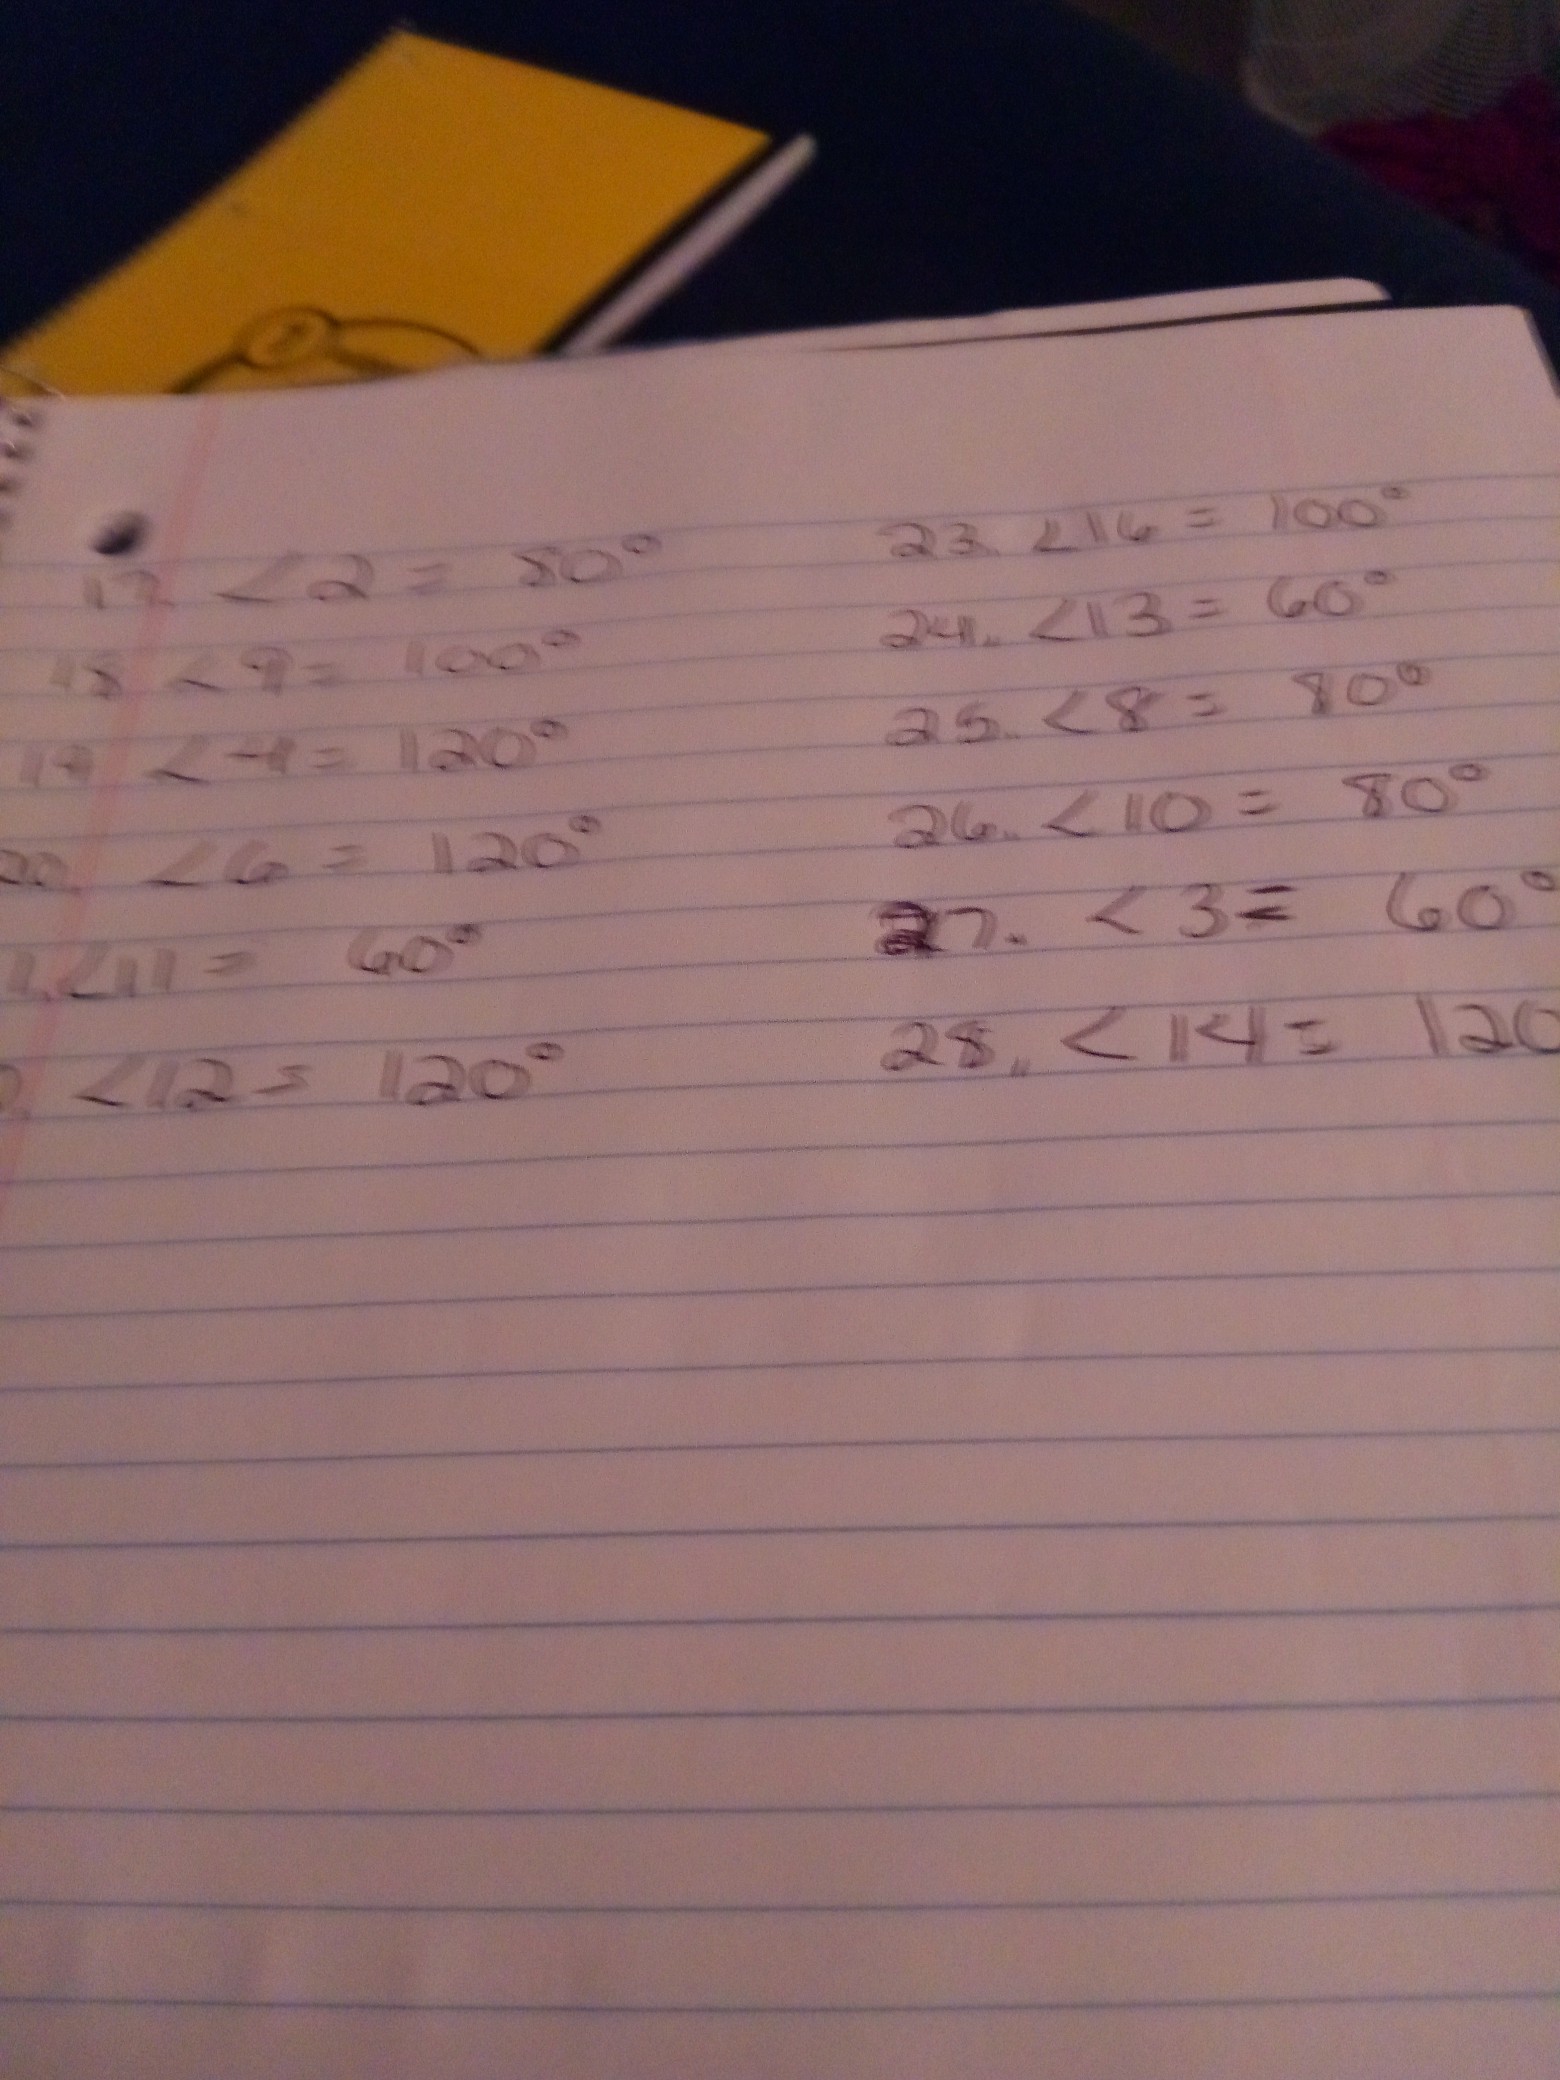 17. <2 = 80°
18 <9 = 100°
19 <4 = 120°
20. <6 = 120°
1. <11 = 60°
<12 = 120°
23. <16 = 100°
24. <13 = 60°
25. <8 = 80°
26. <10 = 80°
27. <3 = 60°
28. <14 = 120